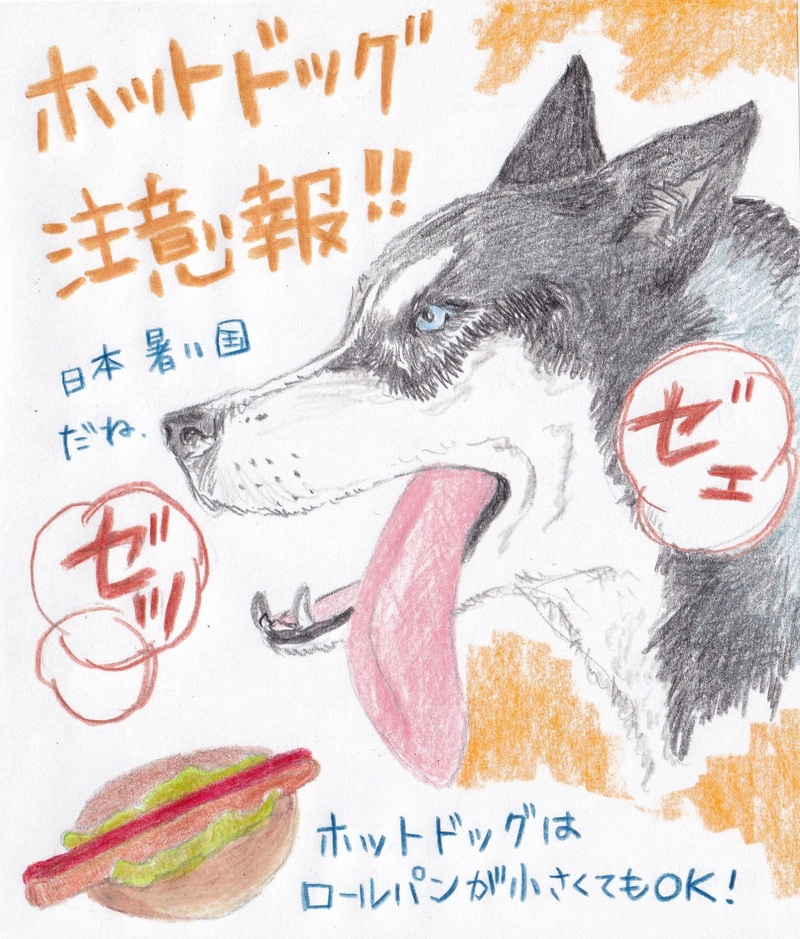 ホットドッグ
注意報!!
日本 暑い国
だね.
ゼェ
ゼッ
ホットドッグは
ロールパンが小さくてもOK!